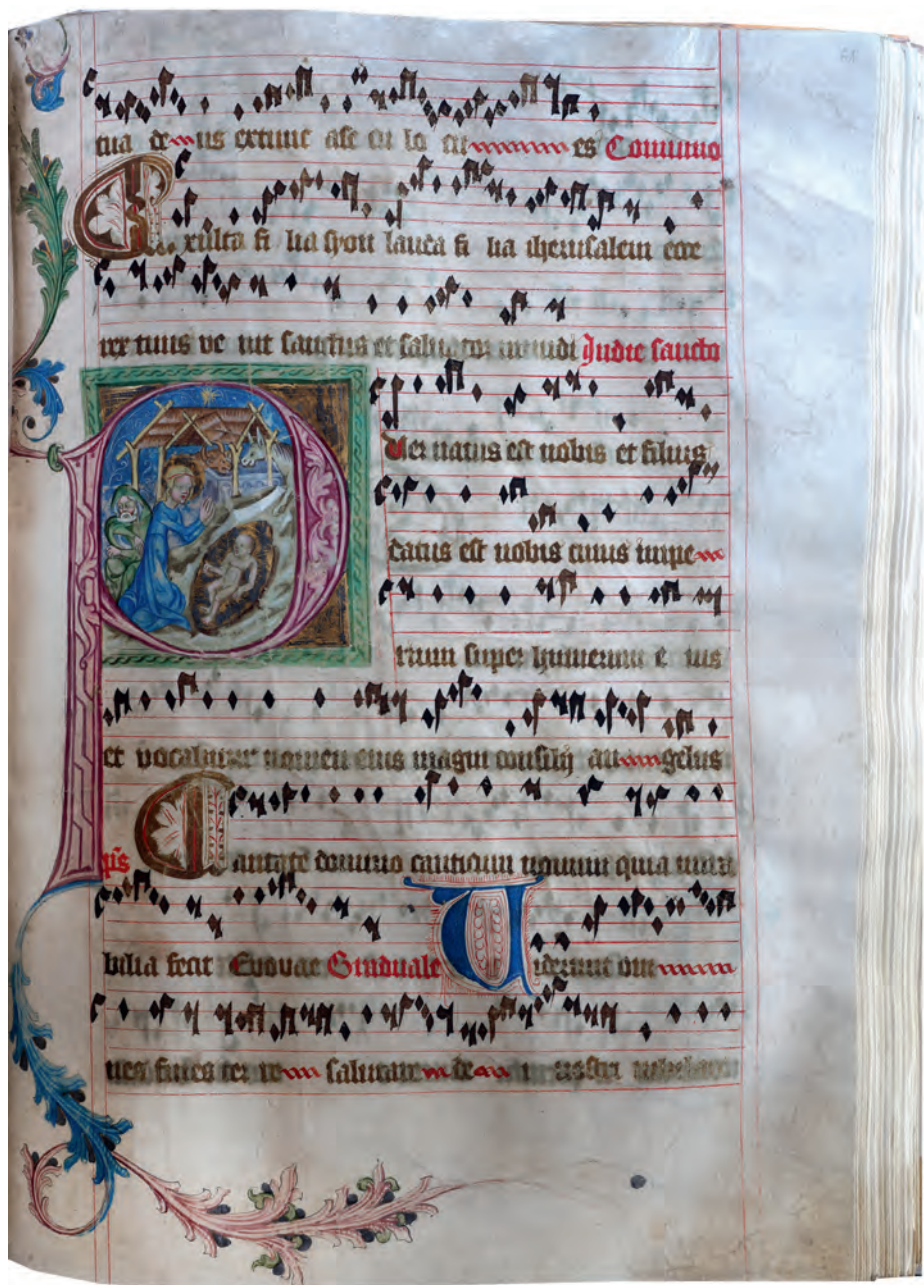 tua de us exinit a se cu lo tu es Comunio
Exulta fi lia syon lauda fi lia iherusalem ecce
rex tuus ve nit sanctus et saluator mundi In die sancto
Puer natus est nobis et filius
datus est nobis cuius impe
rium super humerum e ius
et vocabitur nomen eius magni consilij an gelus
ps Cantate domino canticum nouum quia mira
bilia fecit Euouae Graduale Viderunt om
nes fines ter re salutare de i nostri